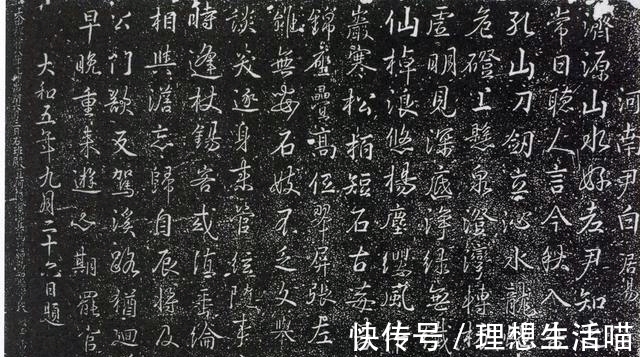 河南尹白居易
濟源山水好老尹知
常日聽人言今秋入
孔山刀劒立沁水龍
危磴上懸泉澄灣轉
虛明見深底淨綠無纖
仙棹浪悠揚塵纓風
巖寒松栢短石古莓
錦疊高低翠屏張左
雖無安石妓不乏文舉
談笑逐身來管絃隨事
時逢杖錫客或值垂綸
相與澹忘歸自辰將及
公門欲反駕溪路猶迴
早晚重來遊心期罷官
大和五年九月二十六日題
快传号/理想生活喵